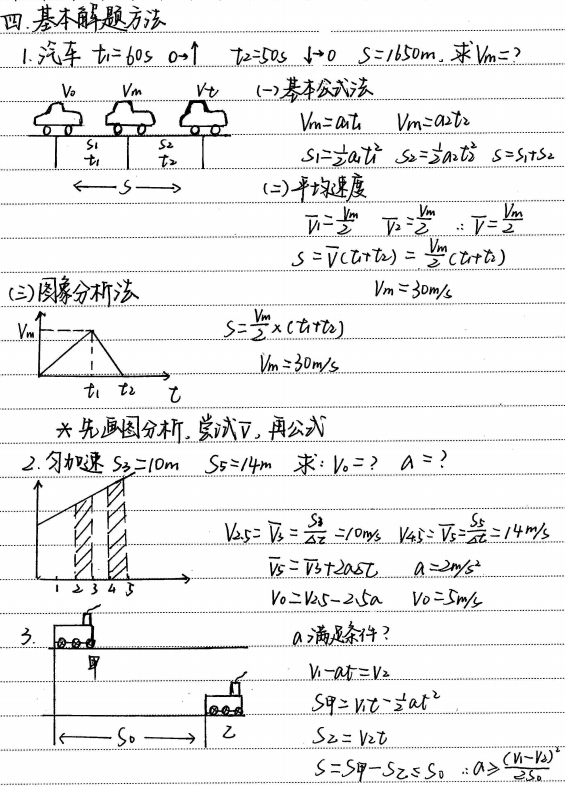 四.基本解题方法
1.汽车 t₁=60s 0→↑ t₂=50s ↓→0 S=1650m,求Vm=?
V₀ Vm Vt
(一)基本公式法
Vm=a₁t₁ Vm=a₂t₂
S₁ S₂
t₁ t₂
S₁=½a₁t₁² S₂=½a₂t₂² S=S₁+S₂
S
(二)平均速度
V̅₁=Vm/2 V̅₂=Vm/2 ∴V̅=Vm/2
S=V̅(t₁+t₂)=Vm/2(t₁+t₂)
Vm=30m/s
(三)图象分析法
Vm
S=Vm/2×(t₁+t₂)
Vm=30m/s
t₁ t₂ t
*先画图分析,尝试V̅,再公式
2.匀加速 S₃=10m S₅=14m 求:V₀=? a=?
V2.5=V̅₃=S₃/Δt=10m/s V4.5=V̅₅=S₅/Δt=14m/s
V̅₅=V̅₃+2aΔt a=2m/s²
V₀=V2.5-2.5a V₀=5m/s
1 2 3 4 5
3.
a满足条件?
甲
V₁-at=V₂
S甲=V₁t-½at²
S₀ 乙
S乙=V₂t
S=S甲-S乙≤S₀ ∴a≥(V₁-V₂)²/2S₀